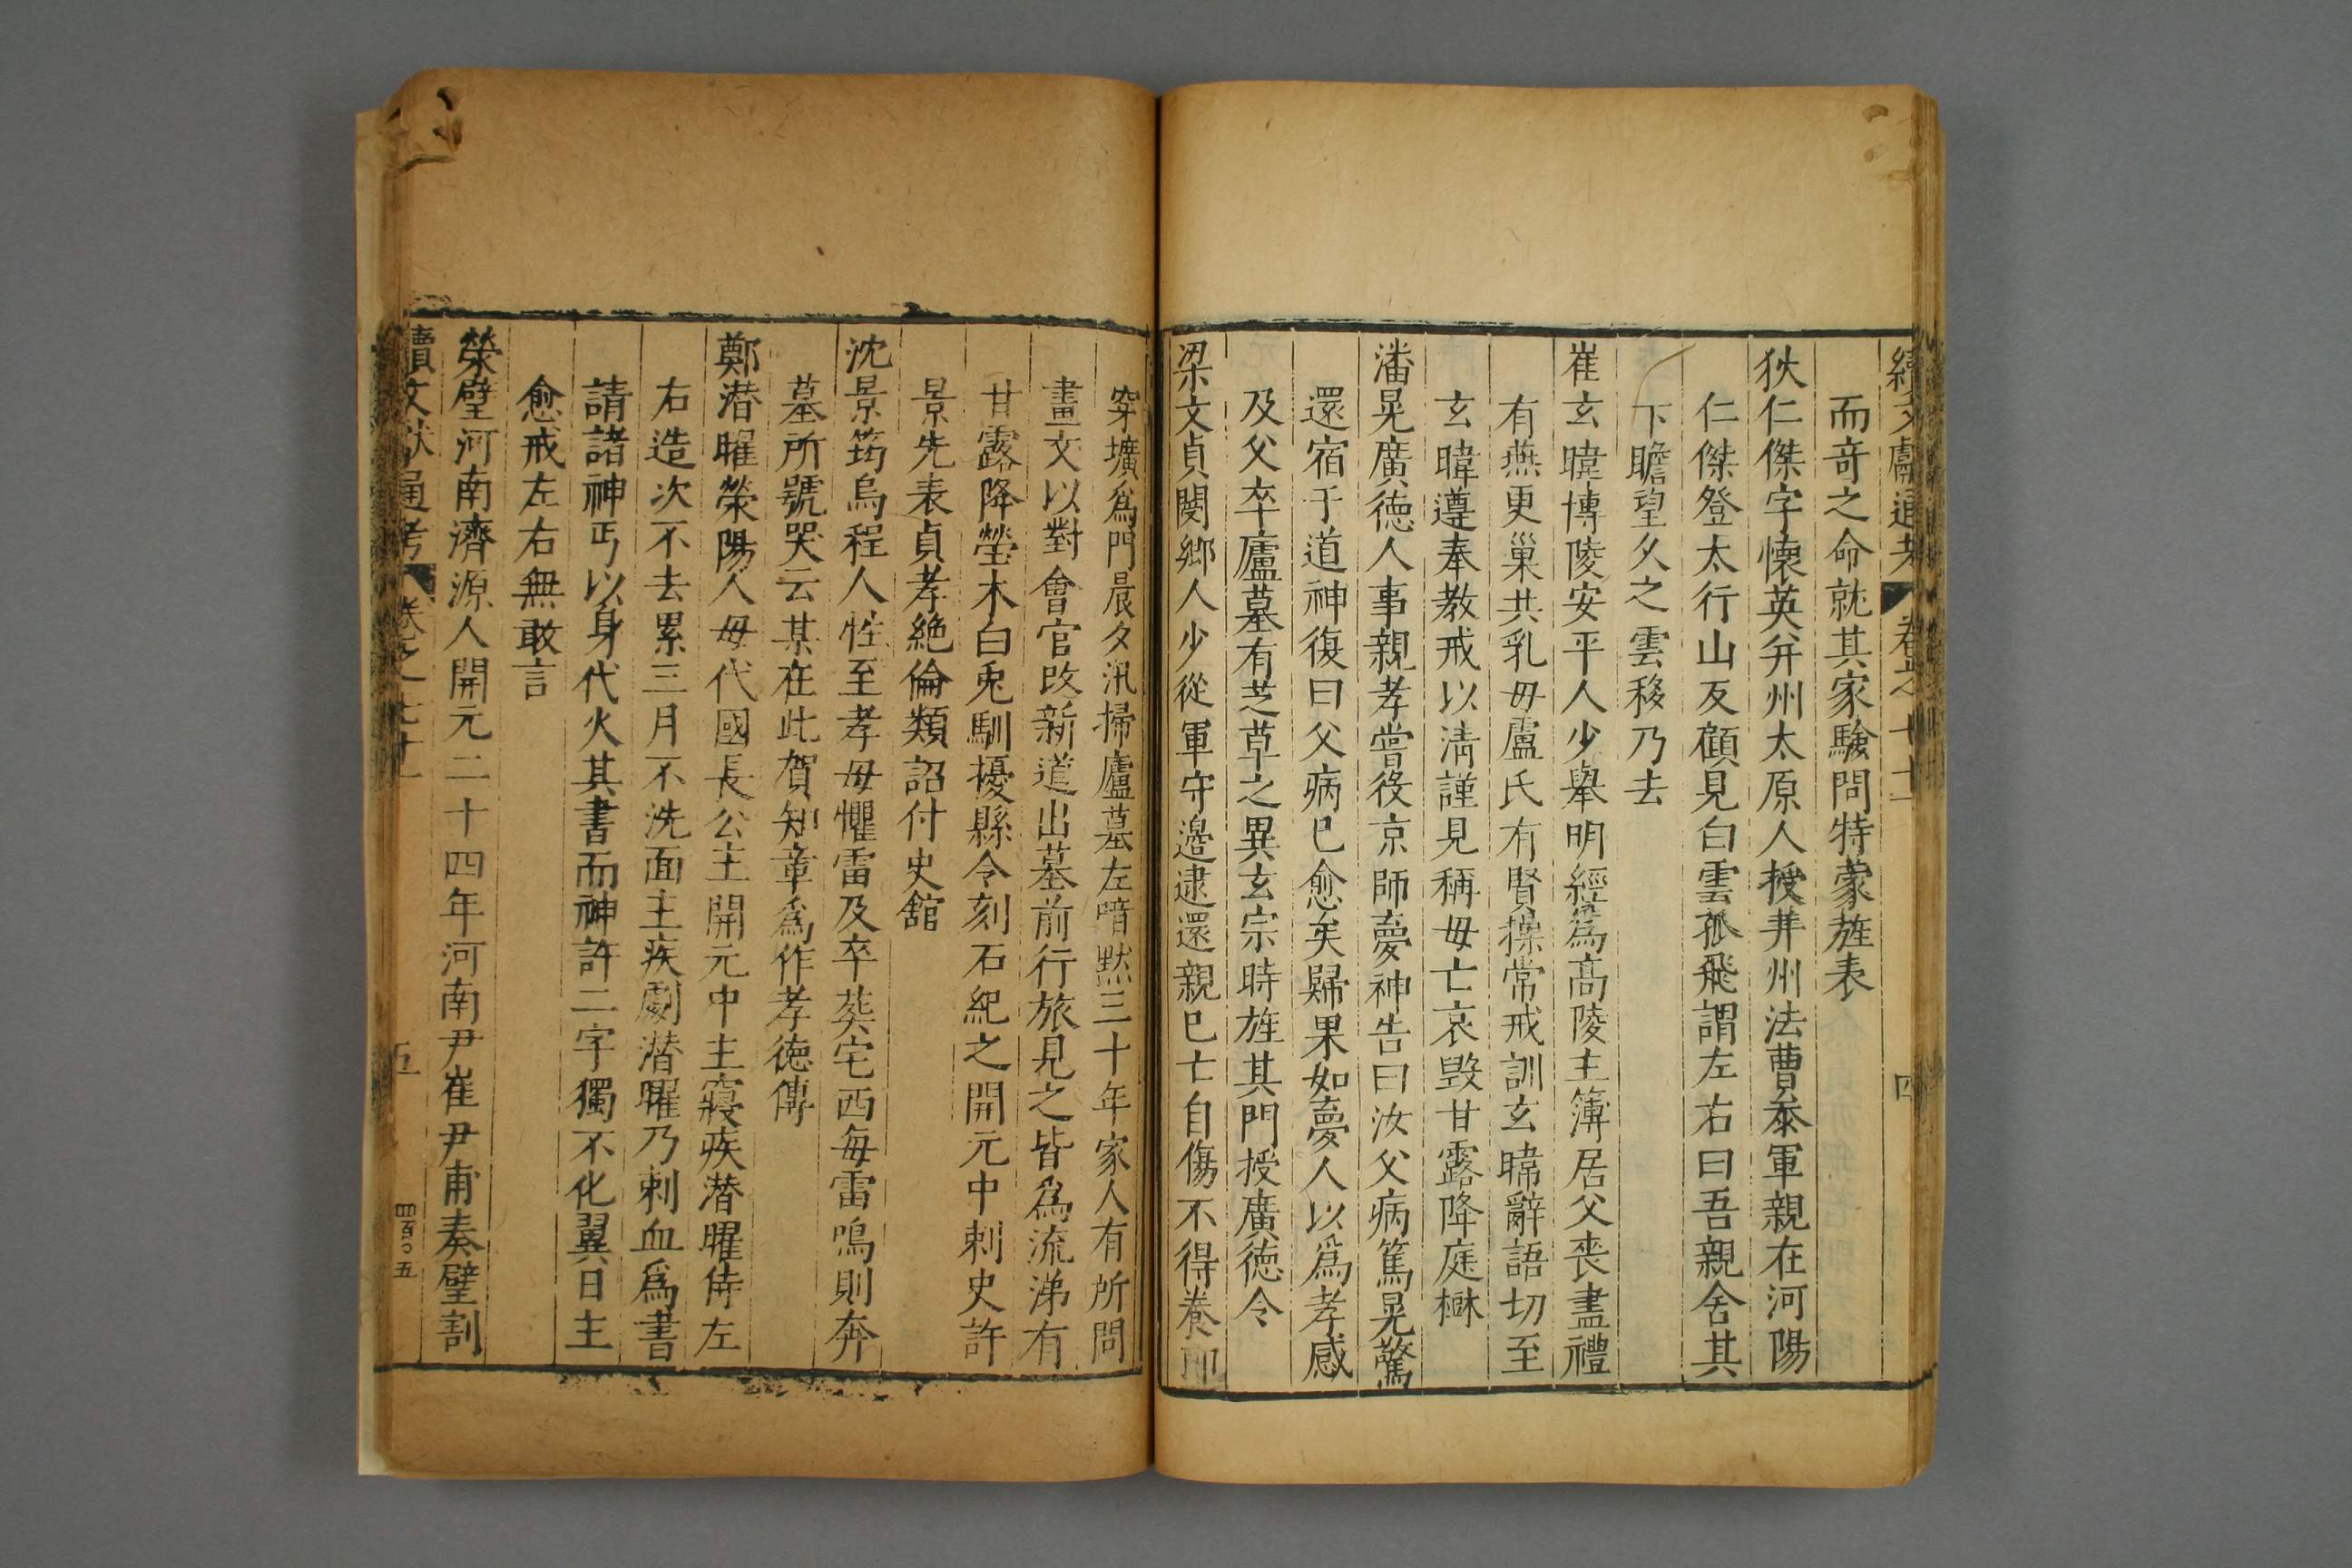 續文獻通考 卷之七十一 四
而竒之命就其家驗問特蒙旌表
狄仁傑字懷英并州太原人授并州法曹叅軍親在河陽
仁傑登太行山反顧見白雲孤飛謂左右曰吾親舍其
下瞻望久之雲移乃去
崔玄暐博陵安平人少舉明經爲高陵主簿居父喪盡禮
有燕更巢共乳母盧氏有賢操常戒訓玄暐辭語切至
玄暐遵奉教戒以淸謹見稱母亡哀毁甘露降庭樹
潘晃廣德人事親孝嘗役京師夢神告曰汝父病篤晃驚
還宿于道神復曰父病已愈矣歸果如夢人以爲孝感
及父卒廬墓有芝草之異玄宗時旌其門授廣德令
梁文貞閿鄉人少從軍守邊逮還親已亡自傷不得養即
穿壙爲門晨夕汛掃廬墓左喑默三十年家人有所問
畫文以對會官改新道出墓前行旅見之皆爲流涕有
甘露降塋木白兎馴擾縣令刻石紀之開元中刺史許
景先表貞孝絶倫類詔付史舘
沈景筠烏程人性至孝母懼雷及卒葬宅西每雷鳴則奔
墓所號哭云某在此賀知章爲作孝德傳
鄭潛曜滎陽人母代國長公主開元中主寢疾潛曜侍左
右造次不去累三月不洗面主疾劇潛曜乃刺血爲書
請諸神丐以身代火其書而神許二字獨不化翼日主
愈戒左右無敢言
榮璧河南濟源人開元二十四年河南尹崔尹甫奏璧割
續文獻通考 卷之七十一 五 四百〇五